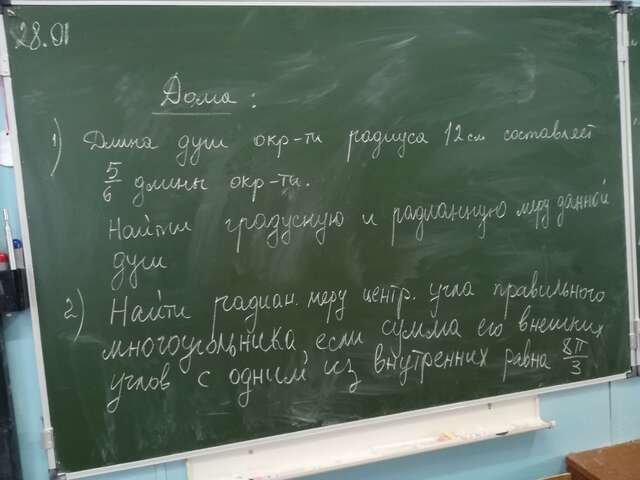 28.01
Дома:
1) Длина дуги окр-ти радиуса 12 см составляет
5/6 длины окр-ти.
Найти градусную и радианную меру данной
дуги
2) Найти радиан. меру центр. угла правильного
многоугольника, если сумма его внешних
углов с одним из внутренних равна 8π/3